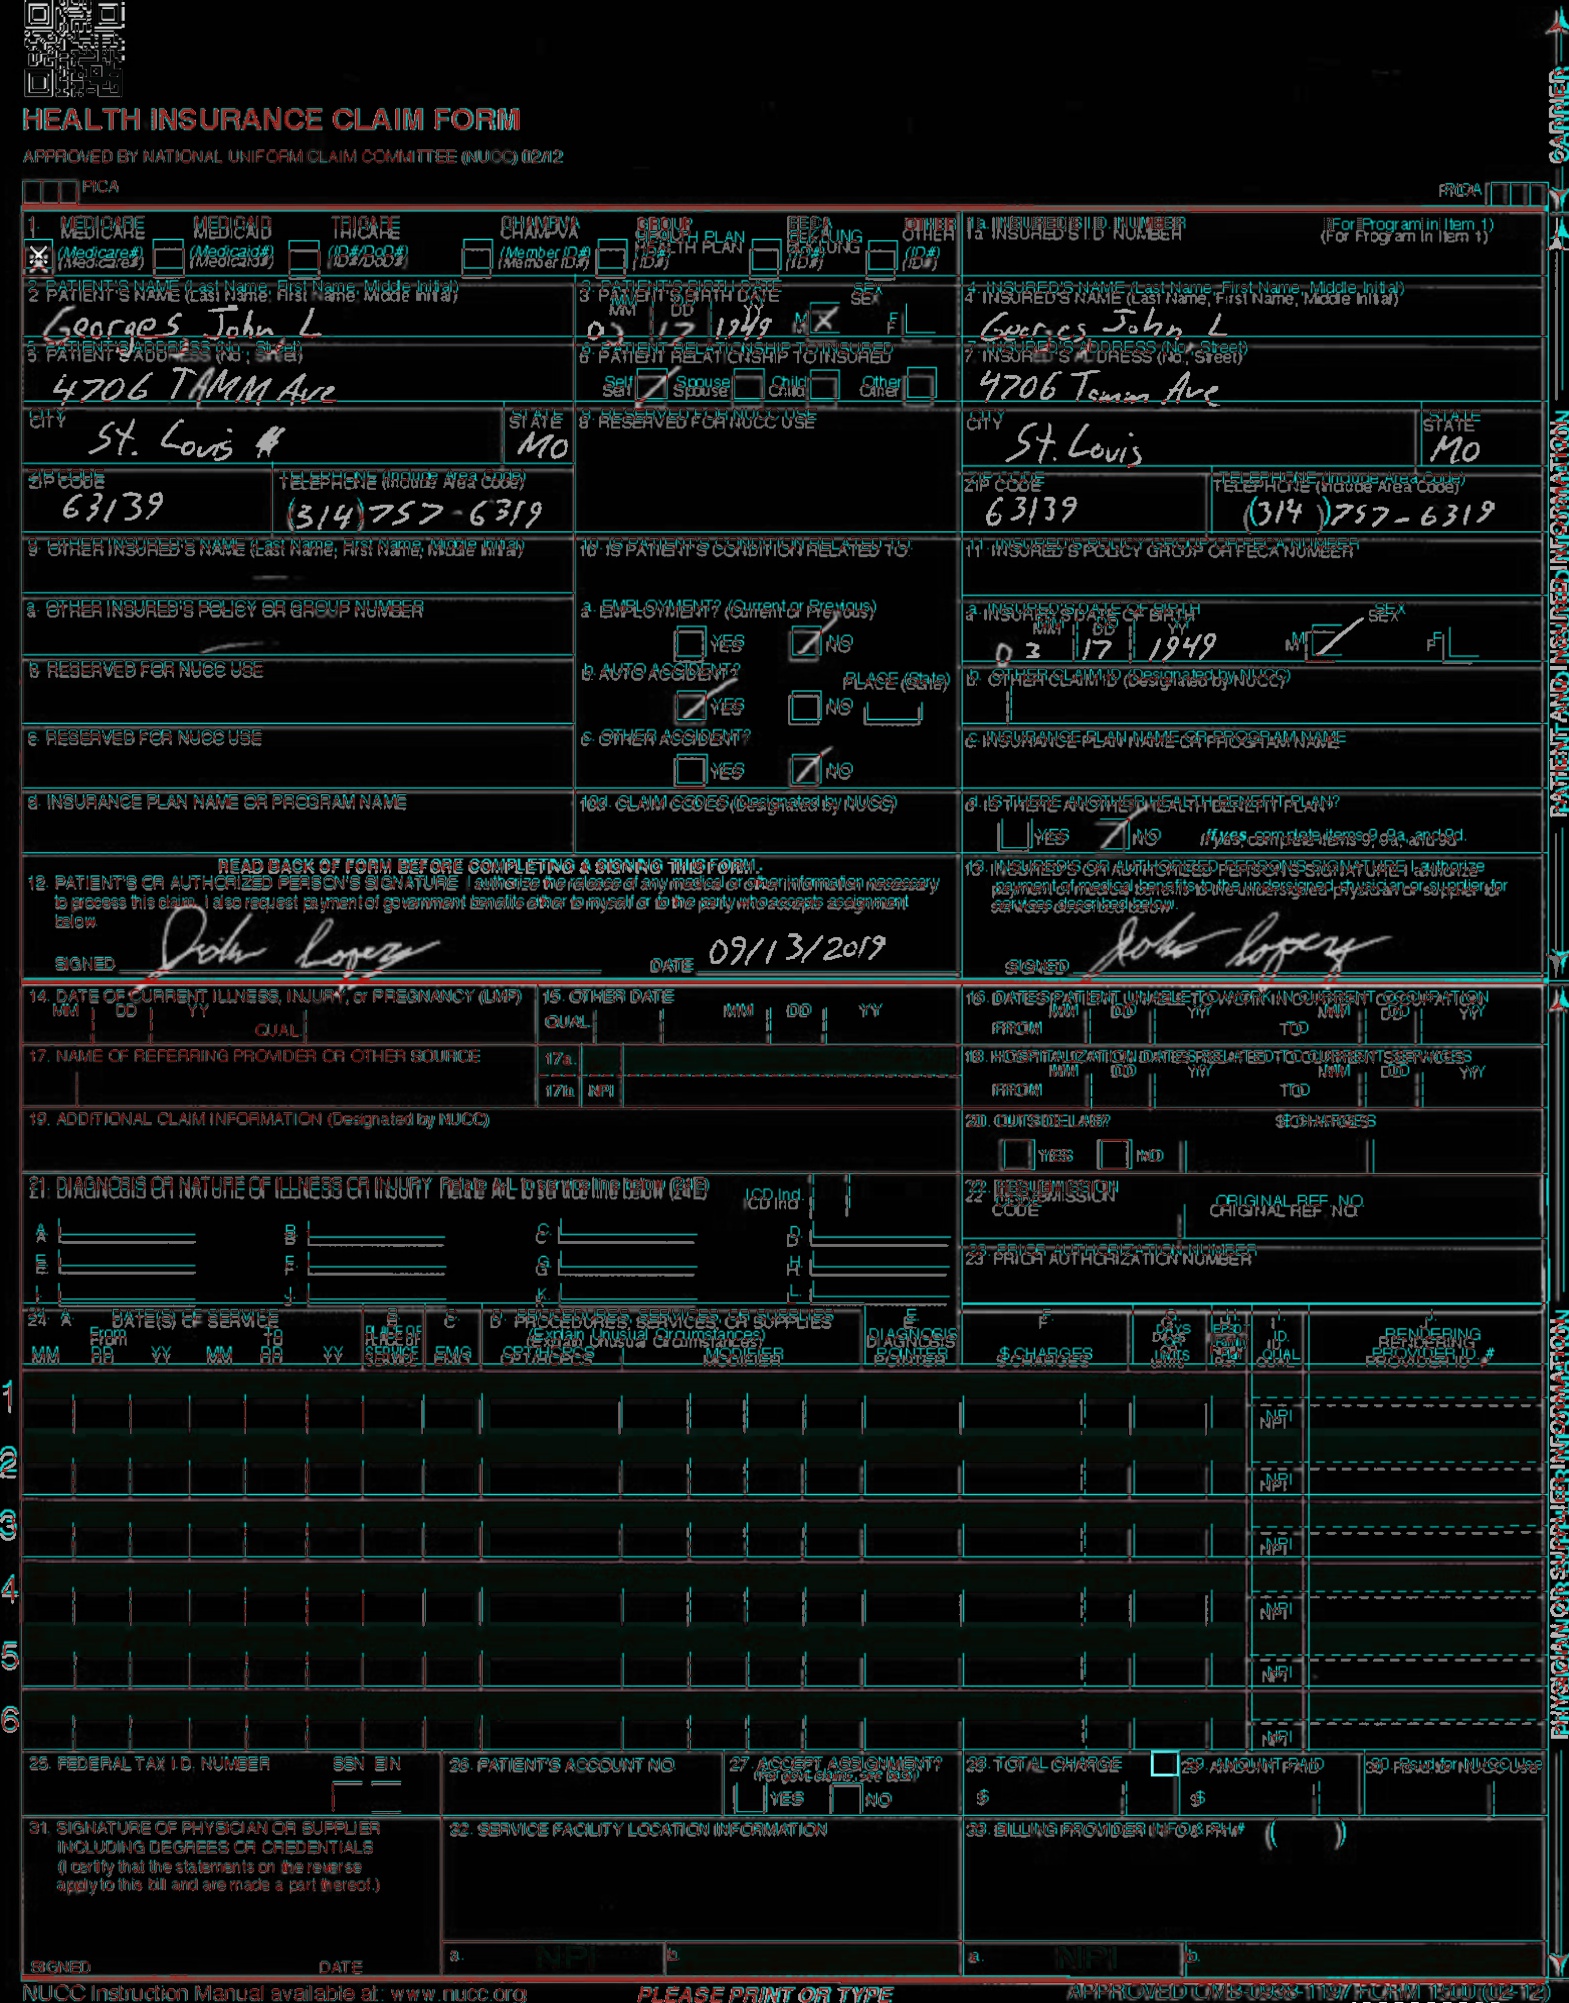 HEALTH INSURANCE CLAIM FORM
APPROVED BY NATIONAL UNIFORM CLAIM COMMITTEE (NUCC) 02/12
PICA
PICA
CARRIER
1. MEDICARE MEDICAID TRICARE CHAMPVA GROUP HEALTH PLAN FECA BLK LUNG OTHER
(Medicare#) (Medicaid#) (ID#/DoD#) (Member ID#) (ID#) (ID#) (ID#)
1a. INSURED'S I.D. NUMBER (For Program in Item 1)
2. PATIENT'S NAME (Last Name, First Name, Middle Initial)
Georges John L
3. PATIENT'S BIRTH DATE SEX
MM DD YY
03 17 1949 M X F
4. INSURED'S NAME (Last Name, First Name, Middle Initial)
Georges John L
5. PATIENT'S ADDRESS (No., Street)
4706 TAMM Ave
6. PATIENT RELATIONSHIP TO INSURED
Self Spouse Child Other
7. INSURED'S ADDRESS (No., Street)
4706 Tamm Ave
CITY STATE
St. Louis MO
8. RESERVED FOR NUCC USE
CITY STATE
St. Louis MO
ZIP CODE TELEPHONE (Include Area Code)
63139 (314) 757-6319
ZIP CODE TELEPHONE (Include Area Code)
63139 (314) 757-6319
9. OTHER INSURED'S NAME (Last Name, First Name, Middle Initial)
10. IS PATIENT'S CONDITION RELATED TO:
11. INSURED'S POLICY GROUP OR FECA NUMBER
a. OTHER INSURED'S POLICY OR GROUP NUMBER
a. EMPLOYMENT? (Current or Previous)
YES NO
a. INSURED'S DATE OF BIRTH SEX
MM DD YY
03 17 1949 M F
b. RESERVED FOR NUCC USE
b. AUTO ACCIDENT? PLACE (State)
YES NO
b. OTHER CLAIM ID (Designated by NUCC)
c. RESERVED FOR NUCC USE
c. OTHER ACCIDENT?
YES NO
c. INSURANCE PLAN NAME OR PROGRAM NAME
d. INSURANCE PLAN NAME OR PROGRAM NAME
10d. CLAIM CODES (Designated by NUCC)
d. IS THERE ANOTHER HEALTH BENEFIT PLAN?
YES NO If yes, complete items 9, 9a, and 9d.
PATIENT AND INSURED INFORMATION
READ BACK OF FORM BEFORE COMPLETING & SIGNING THIS FORM.
12. PATIENT'S OR AUTHORIZED PERSON'S SIGNATURE I authorize the release of any medical or other information necessary
to process this claim. I also request payment of government benefits either to myself or to the party who accepts assignment
below.
SIGNED John Lopez DATE 09/13/2019
13. INSURED'S OR AUTHORIZED PERSON'S SIGNATURE I authorize
payment of medical benefits to the undersigned physician or supplier for
services described below.
SIGNED John Lopez
14. DATE OF CURRENT ILLNESS, INJURY, or PREGNANCY (LMP)
MM DD YY QUAL.
15. OTHER DATE
QUAL. MM DD YY
16. DATES PATIENT UNABLE TO WORK IN CURRENT OCCUPATION
MM DD YY MM DD YY
FROM TO
17. NAME OF REFERRING PROVIDER OR OTHER SOURCE
17a.
17b. NPI
18. HOSPITALIZATION DATES RELATED TO CURRENT SERVICES
MM DD YY MM DD YY
FROM TO
19. ADDITIONAL CLAIM INFORMATION (Designated by NUCC)
20. OUTSIDE LAB? $ CHARGES
YES NO
21. DIAGNOSIS OR NATURE OF ILLNESS OR INJURY Relate A-L to service line below (24E) ICD Ind.
A. B. C. D.
E. F. G. H.
I. J. K. L.
22. RESUBMISSION
CODE ORIGINAL REF. NO.
23. PRIOR AUTHORIZATION NUMBER
24. A. DATE(S) OF SERVICE B. C. D. PROCEDURES, SERVICES, OR SUPPLIES E. F. G. H. I. J.
From To PLACE OF (Explain Unusual Circumstances) DIAGNOSIS DAYS ID. RENDERING
MM DD YY MM DD YY SERVICE EMG CPT/HCPCS MODIFIER POINTER $ CHARGES UNITS QUAL. PROVIDER ID. #
1 NPI
2 NPI
3 NPI
4 NPI
5 NPI
6 NPI
PHYSICIAN OR SUPPLIER INFORMATION
25. FEDERAL TAX I.D. NUMBER SSN EIN
26. PATIENT'S ACCOUNT NO.
27. ACCEPT ASSIGNMENT?
(For govt. claims, see back)
YES NO
28. TOTAL CHARGE
$
29. AMOUNT PAID
$
30. Rsvd for NUCC Use
31. SIGNATURE OF PHYSICIAN OR SUPPLIER
INCLUDING DEGREES OR CREDENTIALS
(I certify that the statements on the reverse
apply to this bill and are made a part thereof.)
SIGNED DATE
32. SERVICE FACILITY LOCATION INFORMATION
a. NPI b.
33. BILLING PROVIDER INFO & PH# ( )
a. NPI b.
NUCC Instruction Manual available at: www.nucc.org
PLEASE PRINT OR TYPE
APPROVED OMB-0938-1197 FORM 1500 (02-12)